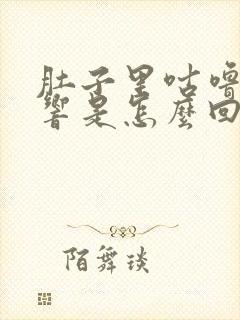 肚子里咕噜
響是怎麼回
陌舞琰